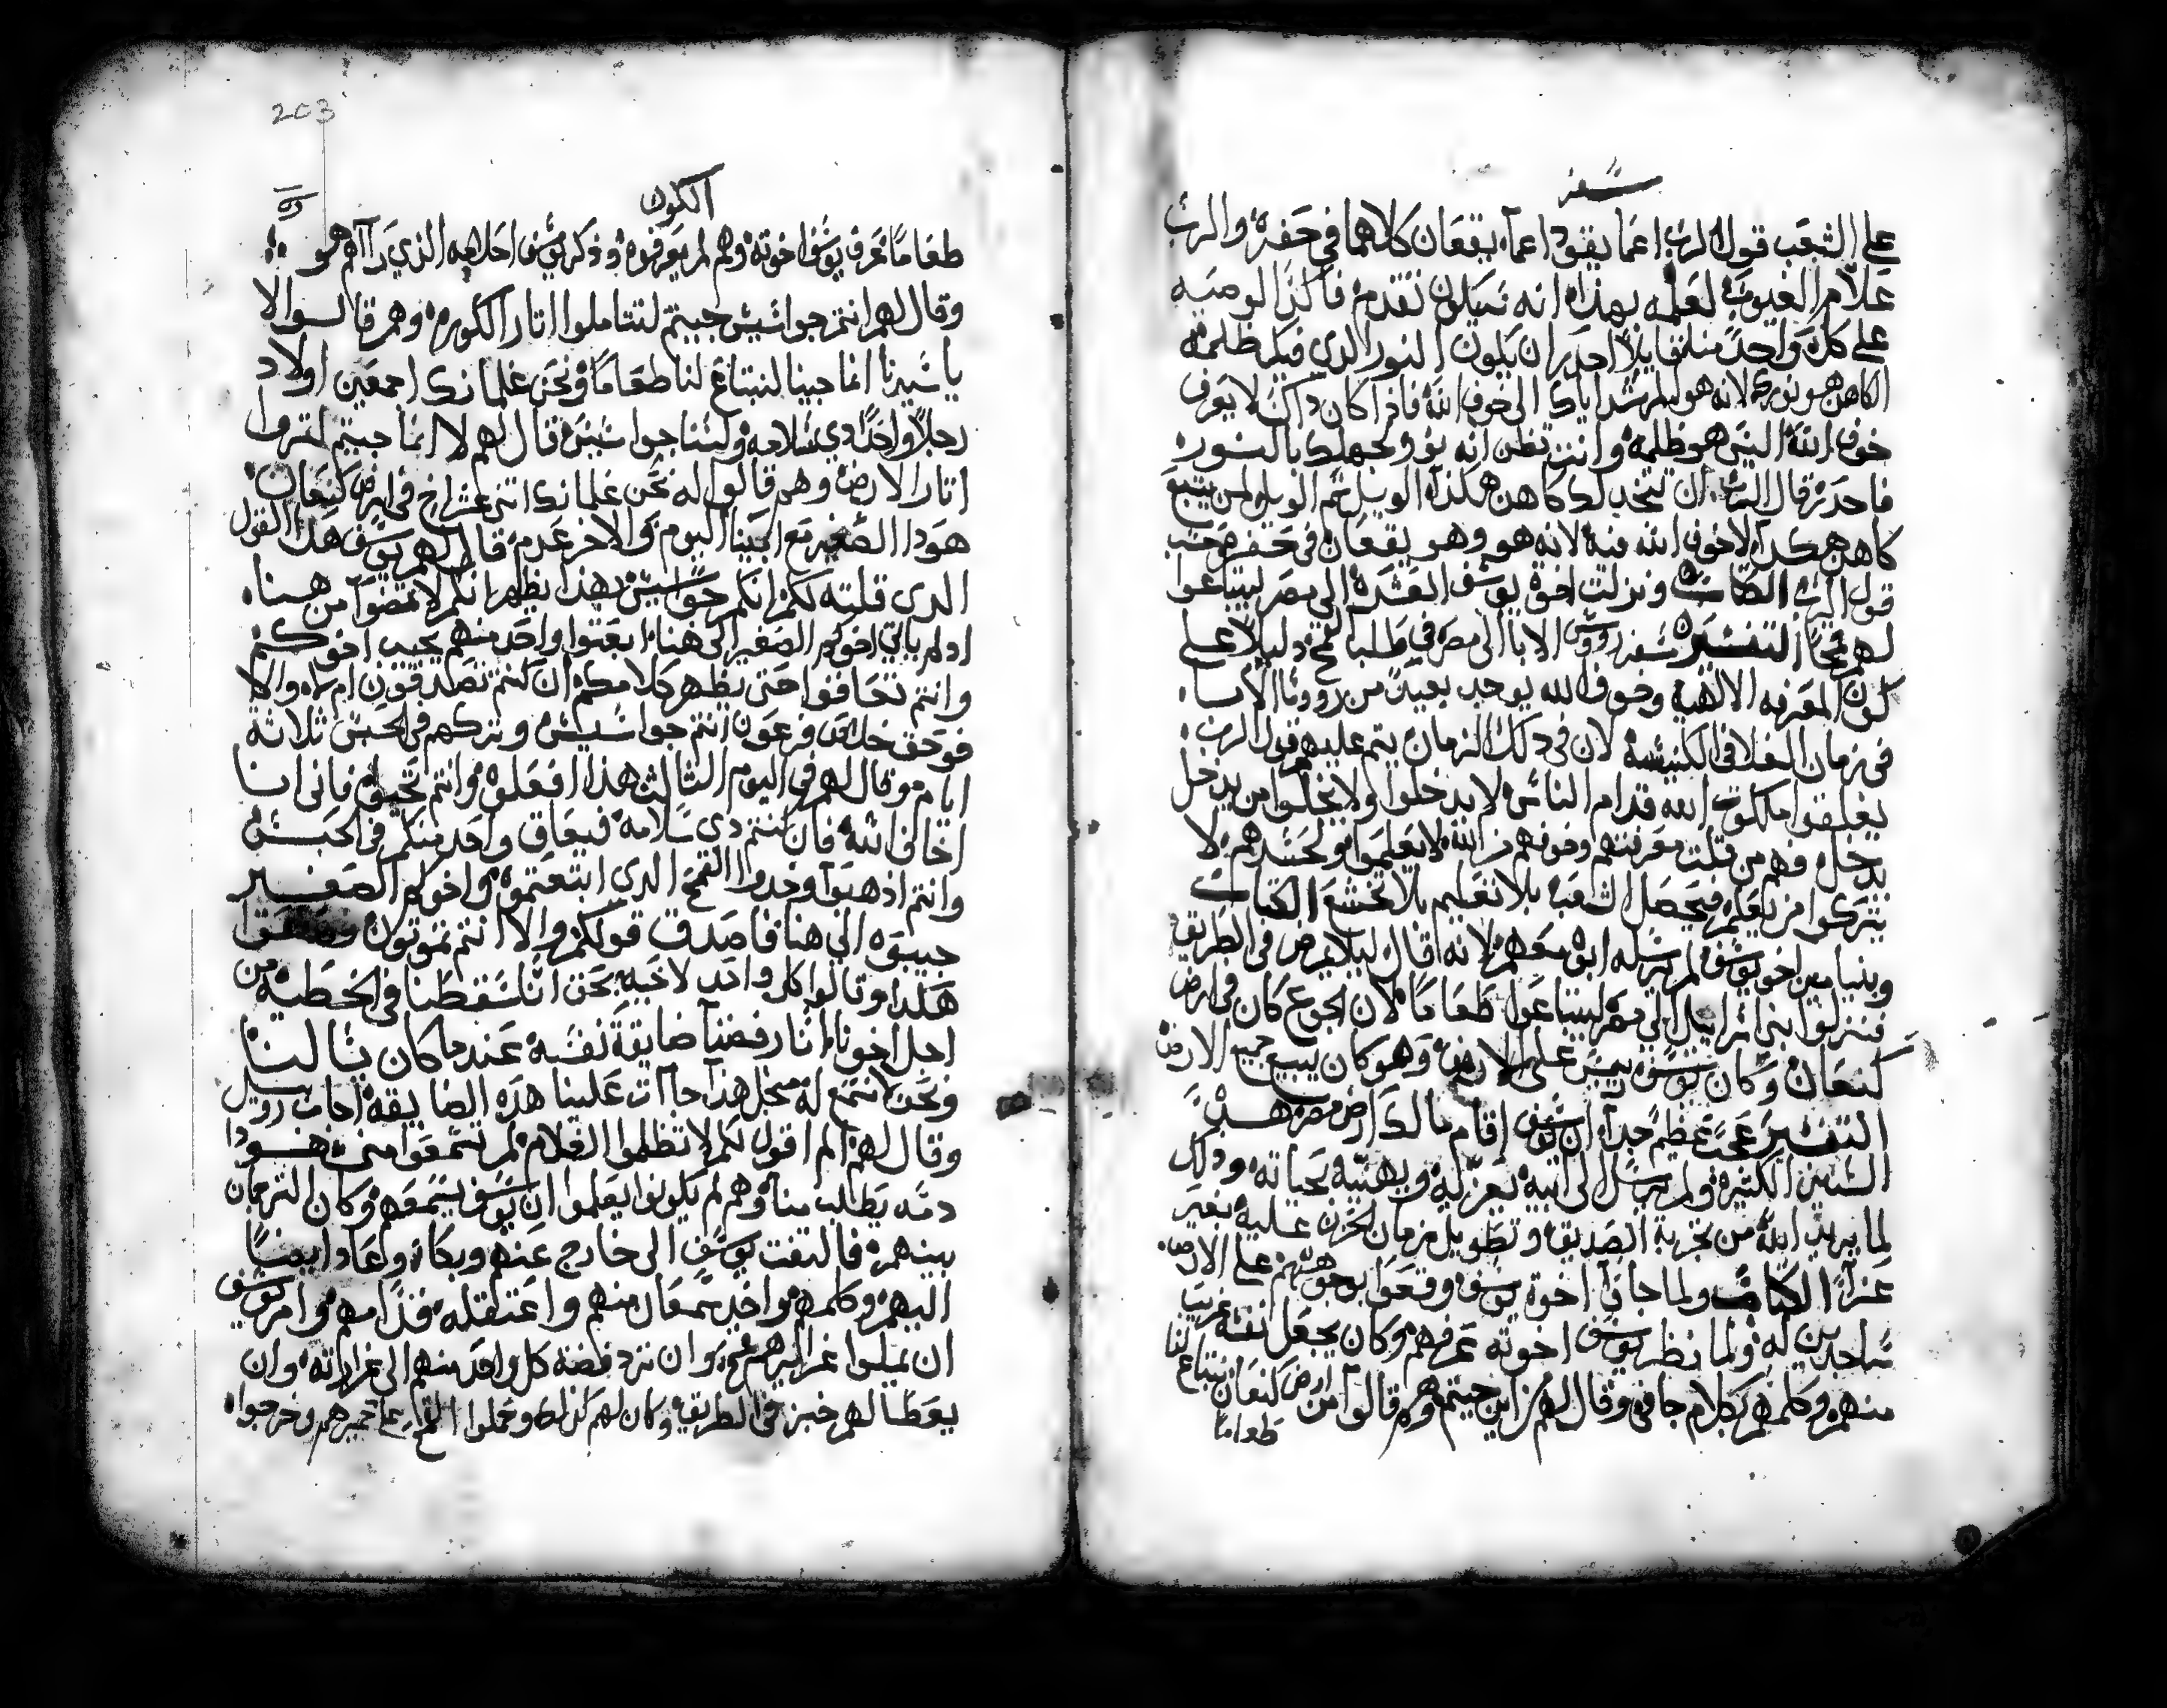 سفر
على الشعب قول الرب اعما يقود اعما يقعان كلاهما في حفرة والرب
علام الغيوب لعلمه بهذا انه سيكون تقدم فاكد الوصيه
على كل واحد منا قايلا احدر ان يكون النور الدي فيك ظلمه
الكاهن هو نورك لانه هو المرشد اياك الى خوف الله فاذا كان داك لا يعرف
خوف الله اليس هو ظلمه وانت تظن انه نور وبجهلك بالنور
فاحدر قال الرب ان تتخد لك كاهن هكذا الويل ثم الويل لمن يتبع
كاهن هكدا لا خوف الله فيه لانه هو وهو يقعان في حفره حسب
قول الرب الكتاب ونزلت اخوة يوسف العشرة الى مصر ليبتاعوا
لهم قمحا التفسير سفر روس الابا الى مصر في طلب القمح دليلا على
كون المعرفه الالاهية وخوف الله يوجد بعيد من روسا الابا
في زمان الغلا في الكنيسة لان في دلك الزمان يتم عليهم قول الرب
يغلقوا ملكوت الله قدام الناس لا يدخلوا ولا يخلوا من يدخل
يدخل فهم من قلت معرفتهم وخوفهم من الله لا يعلموا ولحسدهم لا
يتركوا من يعلم فيحصل الشعب بلا تعليم بلا تخشع الكتاب
وبنيامين اخو يوسف لم يرسله ابوه معهم لانه قال ليلا يمرض في الطريق
فنزلوا بني اسراييل الى مصر ليبتاعوا طعاما لان الجوع كان في ارض
كنعان وكان يوسف ريس على الارض وهو كان يبيع جميع الارض
التفسير عجب عظيم جدا ان يوسف اقام مالك ارض مصر هده
السنين الكثيرة ولم يرسل الى ابيه يعزيه ويهنيه بحياته ودلك
لما يريد الله من تجربة الصديق وتطويل زمان الحزن عليه بغير
عزآ الكتاب ولما جاوا اخوة يوسف وقعوا بوجوههم على الارض
ساجدين له ولما نظر يوسف اخوته عرفهم وكان يجعل نفسه غريب
منهم وكلمهم بكلام جافي وقال لهم من اين جيتم وهم قالوا من ارض كنعان نبتاع لنا
طعاما
203
الكون
طعاما فعرف يوسف اخوته وهم لم يعرفوه وذكر يوسف احلامه الذي رآآهم هو
وقال لهم انتم جواسيس جيتم لتتاملوا اثار الكورة وهم قالوا لا
يا سيدنا انما جينا لنبتاع لنا طعاما ونحن غلمانك اجمعين اولاد
رجلا واحدا دي سلامه ولسنا جواسيس قال لهم لا انما جيتم لتروا
اثار الارض وهم قالوا له نحن غلمانك اتني عشر اخ في ارض كنعان
هودا الصغير مع ابينا اليوم والاخر عدم قال لهم يوسف هدا القول
الدي قلته لكم انكم جواسيس بهذا يظهر انكم لا تمضوا من هنا
او لم ياتي اخوكم الصغير الى هنا ابعتوا واحد منهم يجيب اخوكم
وانتم تحافظوا حتى يظهر كلامكم ان كنتم تصدقون ام لا والا
فوحق خلاص فرعون انتم جواسيس وتركهم في الحبس ثلاثة
ايام وقال لهم في اليوم الثالث هذا افعلوه وانتم تحيوا فاني انا
اخاف الله فان كنتم دي سلامه فيعاق واحد منكم في الحبس
وانتم اذهبوا وخدوا القمح الدي ابتعتموه واخوكم الصغير
جيبوه الى هنا فاصدق قولكم والا انتم تموتون وصنعوا
هكدا وقالوا كل واحد لاخيه نحن اننا سقطنا في الخطية من
اجل اخونا اننا رفضنا ضايقة نفسه عندما كان يسالنا
ونحن لا نتمع له من اجل هذا جاآت علينا هذه الضايقه اجاب روبيل
وقال لهم الم اقول لكم لا تظلموا الغلام لم تسمعوا مني هودا
دمه يطلب منا وهم لم يكونوا يعلموا ان يوسف يسمعهم وكان الترجمان
بينهم فالتفت يوسف الى خارج عنهم وبكا وعاد ايضا
اليهم وكلمهم واخد سمعان منهم واعتقله قدامهم وامر يوسف
ان يملوا غرايرهم قمح وان ترد فضة كل واحد منهم الى غرارته وان
يعطا لهم خبز في الطريق وكان لهم كدلك وحملوا القمح على حميرهم وخرجوا